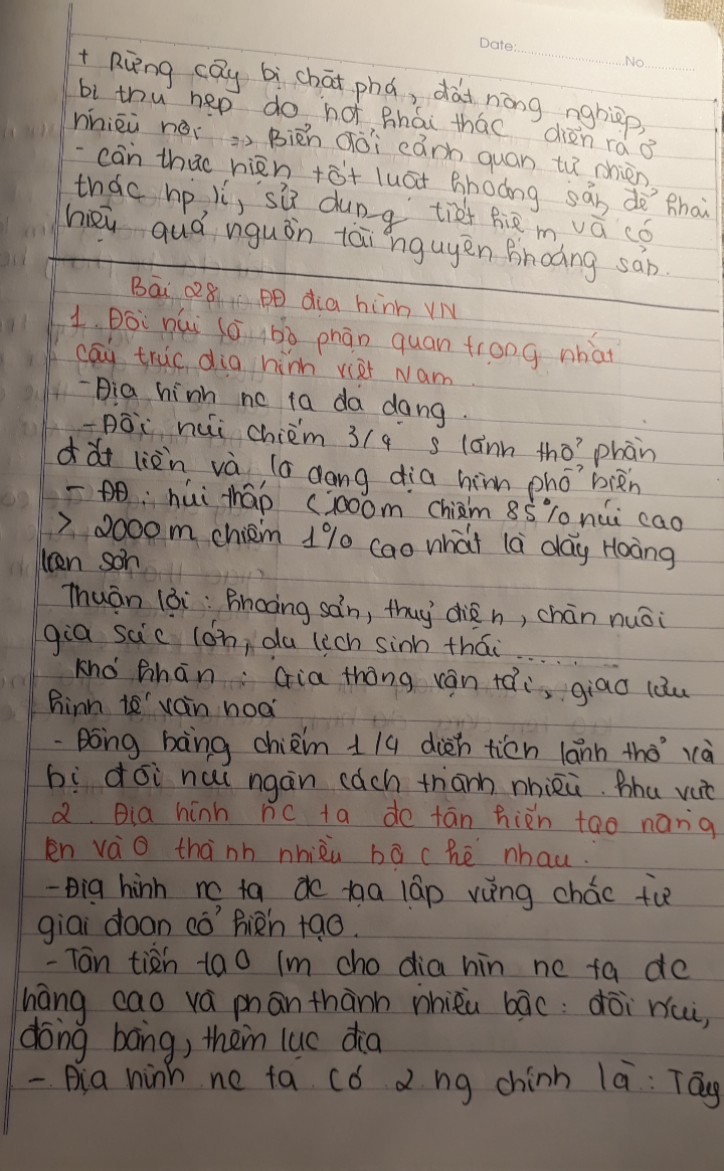 Date: No
+ Rừng cây bị chặt phá, đất nông nghiệp,
bị thu hẹp do hđ khai thác diễn ra ở
nhiều nơi => Biến đổi cảnh quan tự nhiên
- cần thực hiện tốt luật khoáng sản để khai
thác hp lí, sử dụng tiết kiệm và có
hiệu quả nguồn tài nguyên khoáng sản.
Bài 28 ĐĐ địa hình VN
1. Đồi núi là bộ phận quan trọng nhất
cấu trúc địa hình việt Nam
- Địa hình nc ta đa dạng.
- Đồi núi chiếm 3/4 s lãnh thổ phần
đất liền và là dạng địa hình phổ biến
- ĐĐ: núi thấp < 1000m chiếm 85% núi cao
> 2000m chiếm 1% cao nhất là dãy Hoàng
lien sơn
Thuận lợi: khoáng sản, thuỷ điện, chăn nuôi
gia súc lớn, du lịch sinh thái .....
Khó khăn: Gia thông vận tải, giao lưu
kinh tế văn hoá
- Đồng bằng chiếm 1/4 diện tích lãnh thổ và
bị đồi núi ngăn cách thành nhiều khu vực
2. Địa hình nc ta đc tân kiến tạo nâng
lên và thành nhiều bậc kế nhau.
- Địa hình nc ta đc tạa lập vững chắc từ
giai đoạn cổ kiến tạo.
- Tân tiến tạo lm cho địa hìn nc ta đc
nâng cao và phân thành nhiều bậc: đồi núi,
đồng bằng, thềm lục địa
- Địa hình nc ta có 2 ng chính là: Tây